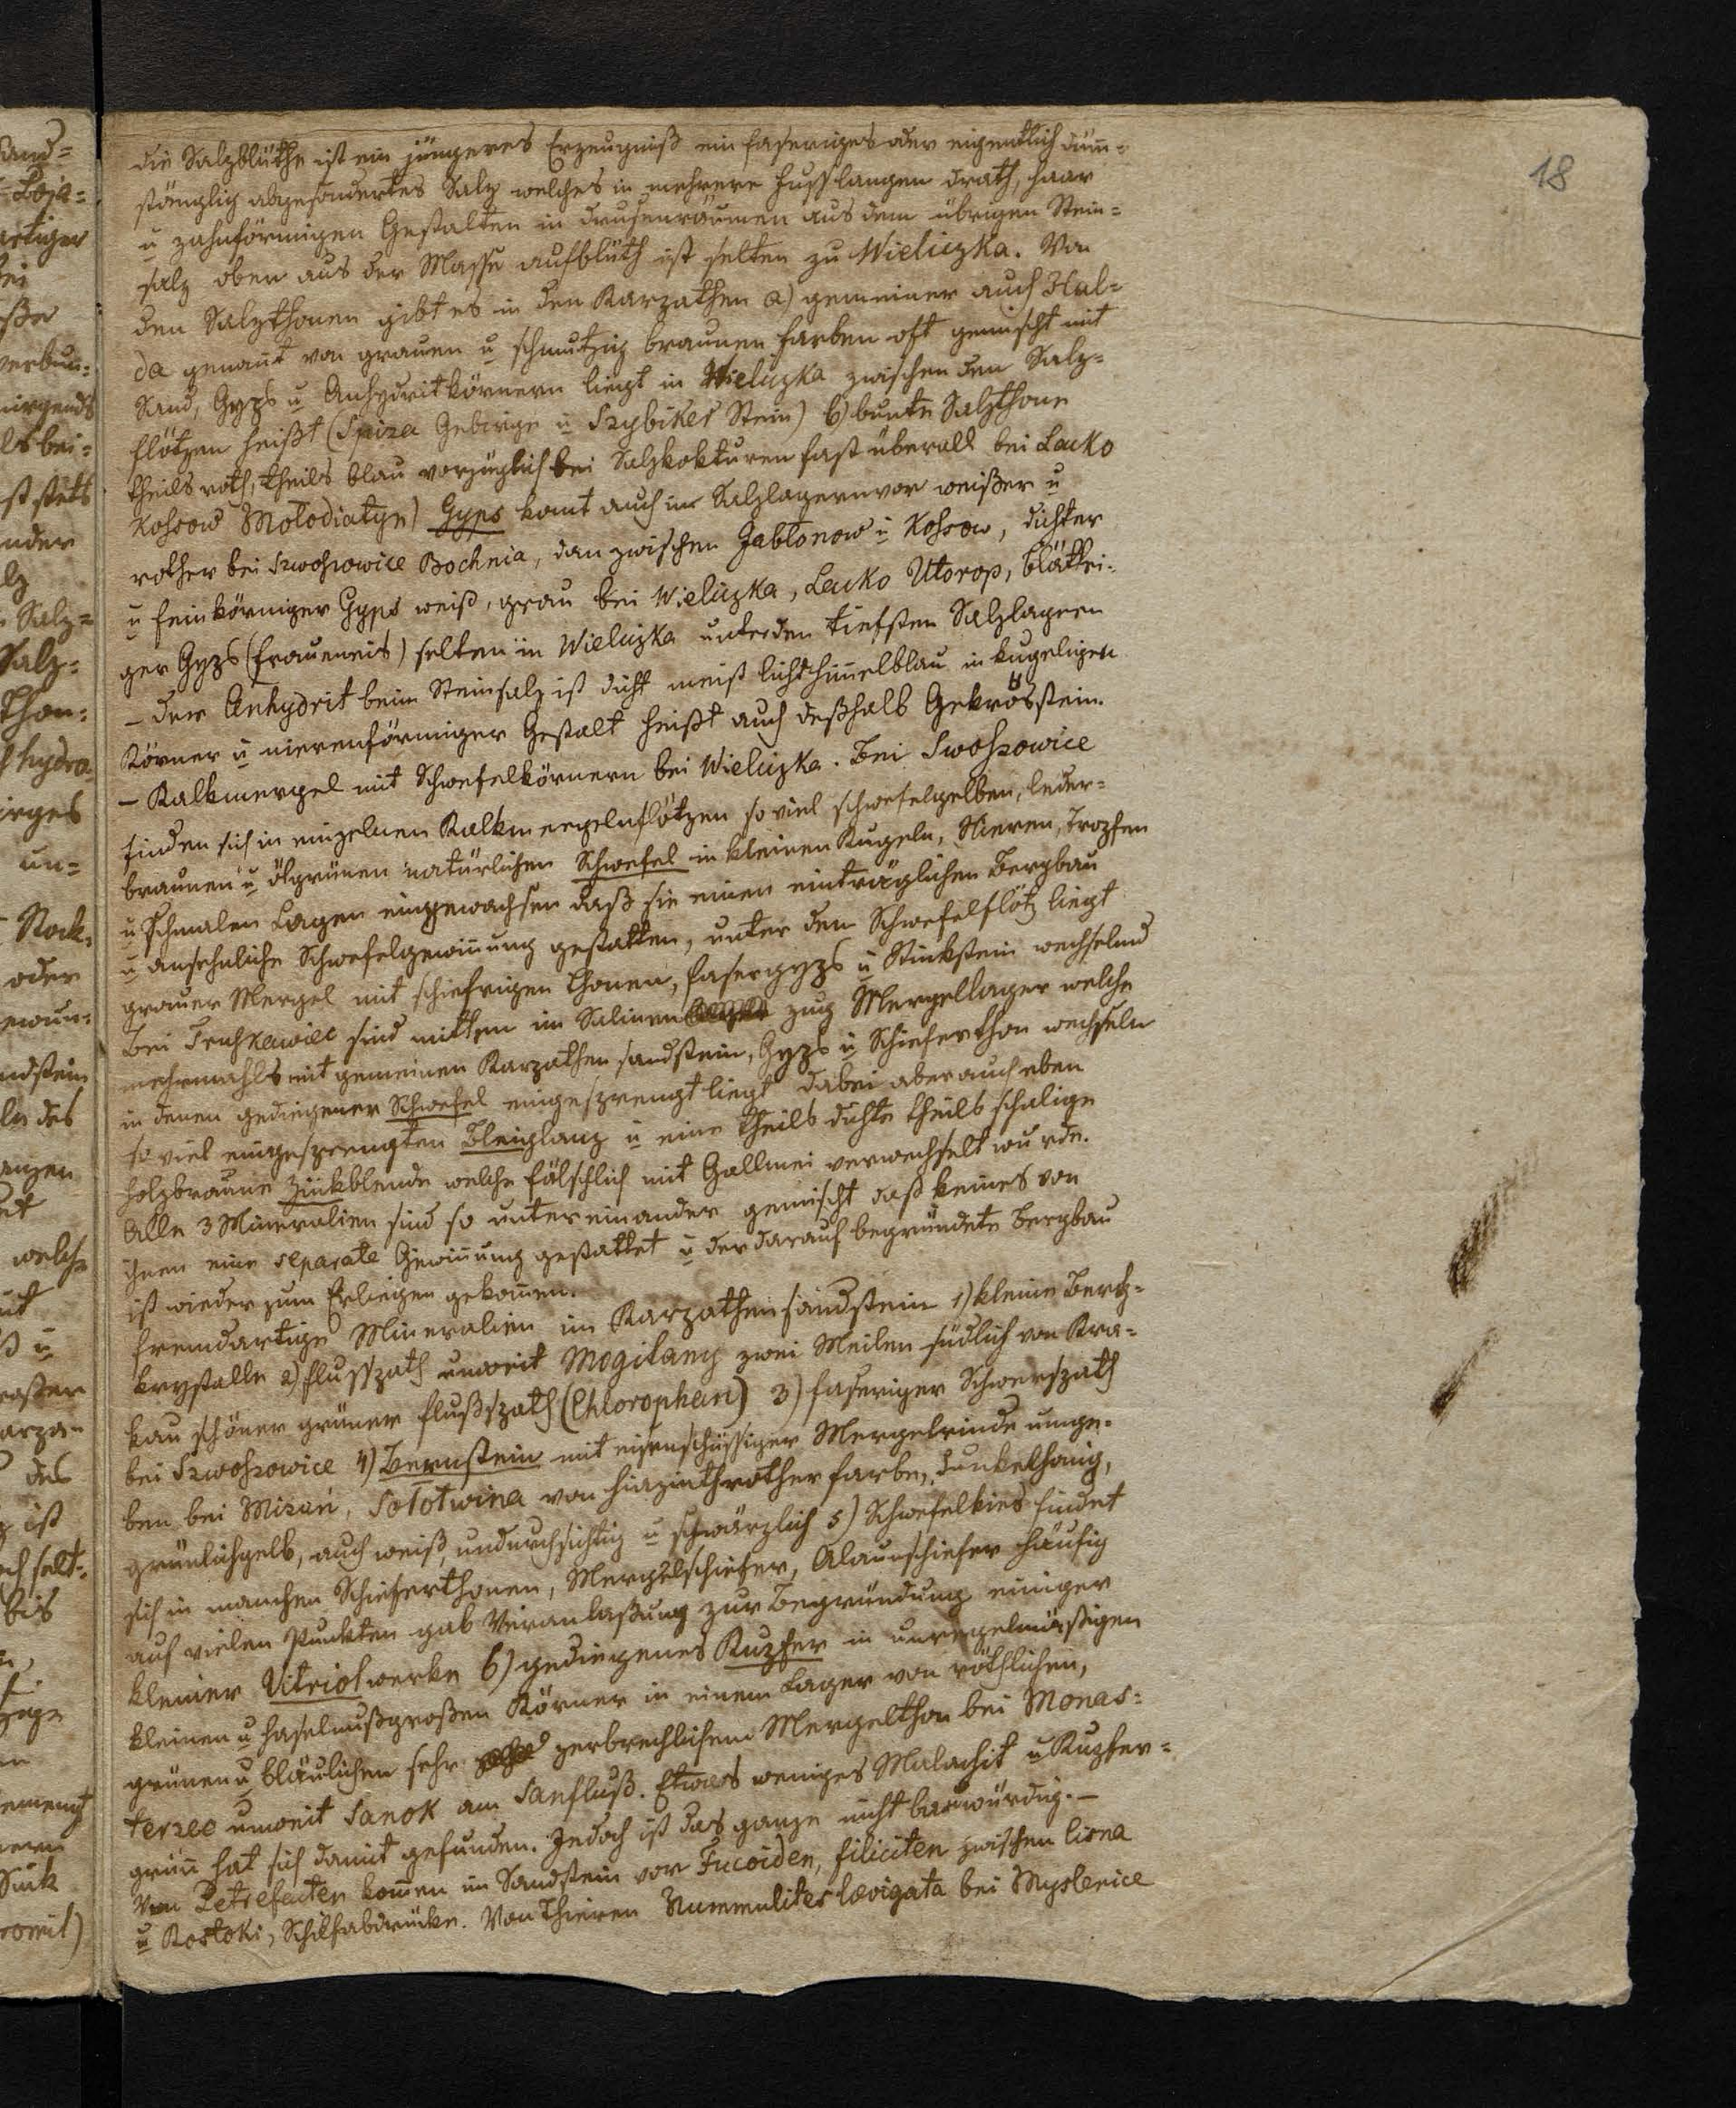 18
die Salzblüthe ist ein jüngeres Erzeugniß ein faseriges oder eigentlich dün̄-
stänglich abgesondertes Salz welches in mehrere Fuss langen drath, haar
u zahnförmigen Gestalten in drusenräumen aus dem übrigen Stein-
salz oben aus der Masse aufblüth ist selten zu Wieliczka. Von
den Salzthonen gibt es in den Karpathen a) gemeiner auch Hal-
da genan̄t von grauen u schmutzig braunen farben oft gemischt mit
Sand, Gyps u Anhydritkörnern liegt in Wieliczka zwischen den Salz-
flötzen heißt (Spiza Gebirge u Szybiker Stein) b) bunte Salzthone
theils roth, theils blau vorzüglich bei Salzkokturen fast überall bei Lacko
Kossow Molodiatyn) Gyps kom̄t auch in Salzlagern vor weißer u
rother bei Szwoszowice Bochnia, dan zwischen Jabłonow u Kossow, dichter
u feinkörniger Gyps weiß, grau bei Wieliczka, Lacko Utorop, blättri-
ger Gyps (fraueneis) selten in Wieliczka unter den tiefsten Salzlagern
– der Anhydrit beim Steinsalz ist dicht meist lichthim̄elblau in kugeligen
Körner u nierenförmiger Gestalt heißt auch deßhalb Gekrösstein.
– Kalkmergel mit Schwefelkörnern bei Wieliczka. Bei Swoszowice
finden sich in einzelnen Kalkmergelflötzen so viel schwefelgelben, leder-
braunen u ölgrünen natürlichen Schwefel in kleinen Kugeln, Nieren, Tropfen
u schmalen Lagen eingewachsen daß sie einen einträglichen Bergbau
u ansehnliche Schwefelgewin̄ung gestatten, unter dem Schwefelflötz liegt
grauer Mergel mit schiefrigen Thonen, fasergyps u Stinkstein wechselnd
bei Truskawiec sind mitten im Salinen zug Mergellager welche
mehrmahls mit gemeinen Karpathen sandstein, Gyps u Schieferthon wechseln
in denen gediegener Schwefel eingesprengt liegt dabei aber auch eben
so viel eingesprengten Bleiglanz u eine theils dichte theils schalige
holzbraune Zinkblende welche fälschlich mit Gallmei verwechselt wurde.
Alle 3 Mineralien sind so untereinander gemischt daß keines von
ihnen eine separate Gewin̄ung gestattet u der darauf begründete Bergbau
ist wieder zum Erliegen gekom̄en.
fremdartige Mineralien im Karpathensandstein 1) kleine Berg-
krystalle 2) flusspath unweit Mogilany zwei Meilen südlich von Kra-
kau schöner grüner flußspath (Chlorophan) 3) faseriger Schwerspath
bei Szwoszowice 4) Bernstein mit eisenschüssiger Mergelrinde umge-
ben bei Mizuń, Solotwina von hiazinthrother farbe, dunkelhonig,
grünlichgelb, auch weiß, undurchsichtig u schwärzlich 5) Schwefelkies findet
sich in manchen Schieferthonen, Mergelschiefer, Alaunschiefer häufig
auf vielen Punkten gab Veranlaßung zur Begründung einiger
kleiner Vitriolwerke 6) gediegenes Kupfer in unregelmäßigen
kleinen u haselnußgroßen Körner in einem Lager von röthlichen,
grünen u bläulichen sehr zerbrechlichem Mergelthon bei Monas-
terzec unweit Sanok am Sanfluß. Etwas weniges Malachit u Kupfer-
grün hat sich damit gefunden. Jedoch ist das ganze nicht bauwürdig. –
Von Petrefacten kom̄en im Sandstein vor Fucoiden, filiciten zwischen Cisna
u Roztoki, Schilfabdrücke. Von Thieren Nummulites lævigata bei Myslenice